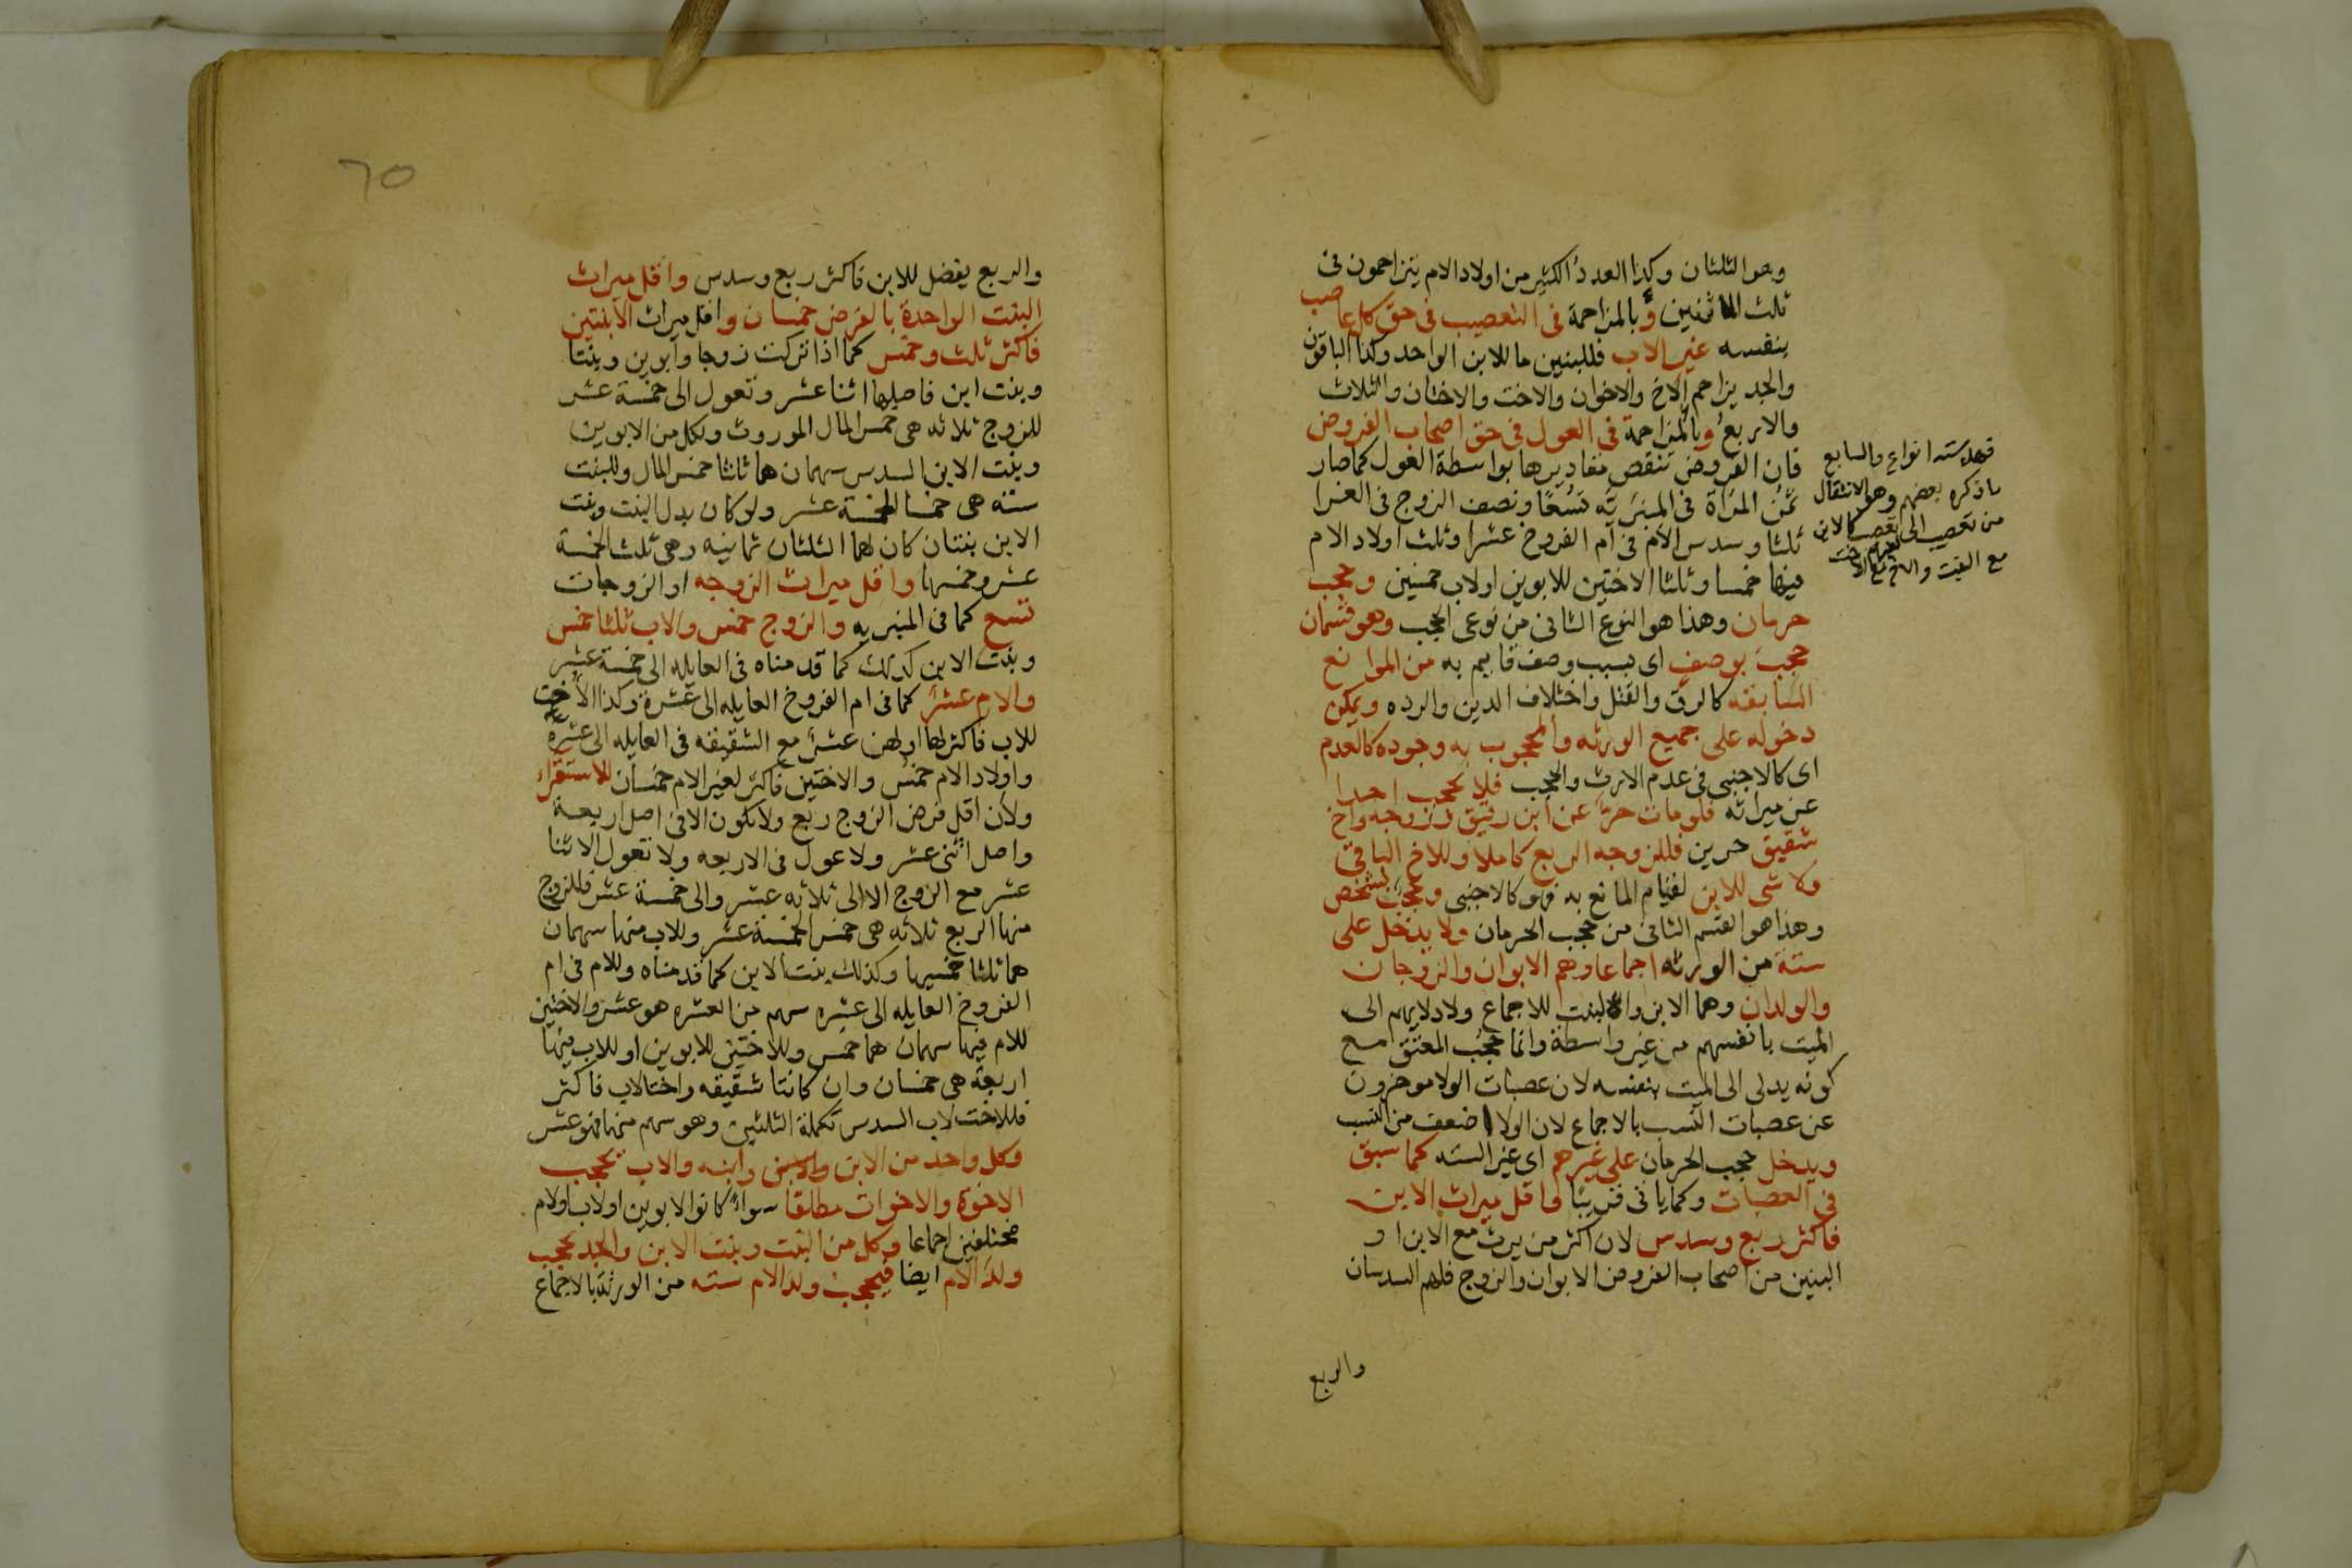 وهو الثلثان وكذا العدد الكثير من اولاد الام يتزاحمون فى
ثلث المال اثنين وبالمزاحمة فى التعصيب فى حق كل عاصب
بنفسه غير الاب فللبنين ما للابن الواحد وكذا الباقون
والجد يزاحم الاخ والاخوان والاخت والاختان والثلاث
والاربع وبالمزاحمة فى العول فى حق اصحاب الفروض
فان الفروض تنقص مقاديرها بواسطة العول كما صار
ثمن المرأة فى المنبريه تسعا ونصف الزوج فى الغرا
ثلثا وسدس الام فى ام الفروخ عشرا وثلث اولاد الام
فيها خمسا وثلثا الاختين للابوين اولاب خمسين وحجب
حرمان وهذا هو النوع الثانى من نوعى الحجب وهو قسمان
حجب بوصف اى بسبب وصف قايم به من الموانع
السابقه كالرق والقتل واختلاف الدين والرده ويمكن
دخوله على جميع الورثه والمحجوب به وجوده كالعدم
اى كالاجنبى فى عدم الارث والحجب فلا يحجب احدا
عن ميراثه فلومات حر عن ابن رقيق وزوجه واخ
شقيق حرين فللزوجه الربع كاملا وللاخ الباقى
ولا شى للابن لقيام المانع به فهو كالاجنبى وحجب بشخص
وهذا هو القسم الثانى من حجب الحرمان ولا يدخل على
ستة من الورثه اجماعا وهم الابوان والزوجان
والولدان وهما الابن والبنت للاجماع ولادلايهم الى
الميت بانفسهم من غير واسطة وانما حجب المعتق مع
كونه يدلى الى الميت بنفسه لان عصبات الولا موخرون
عن عصبات النسب بالاجماع لان الولا اضعف من النسب
ويدخل حجب الحرمان على غيرهم اى غير السته كما سبق
فى العصبات وكما ياتى قريبا واقل ميراث الابن
فاكثر ربع وسدس لان اكثر من يرث مع الابن او
البنين من اصحاب الفروض الابوان والزوج فلهم السدسان
والربع
فهذه ستة انواع والسابع
ما ذكره بعضهم وهو الانتقال
من تعصيب الى تعصيب كالابن
مع البنت والاخ مع الاخت
٦٥
والربع يفضل للابن فاكثر ربع وسدس واقل ميراث
البنت الواحدة بالفرض خمسان واقل ميراث الابنتين
فاكثر ثلث وخمس كما اذا تركت زوجا وابوين وبنتا
وبنت ابن فاصلها اثنا عشر وتعول الى خمسة عشر
للزوج ثلاثه هى خمس المال الموروث ولكل من الابوين
وبنت الابن السدس سهمان هما ثلثا خمس المال وللبنت
سته هى خمسا الخمسة عشر ولو كان بدل البنت وبنت
الابن بنتان كان لهما الثلثان ثمانيه وهى ثلث الخمسة
عشر وخمسها واقل ميراث الزوجه او الزوجات
تسع كما فى المنبريه والزوج خمس والاب ثلثا خمس
وبنت الابن كذلك كما قدمناه فى العايله الى خمسة عشر
والام عشر كما فى ام الفروخ العايله الى عشرة وكذا الاخت
للاب فاكثر لها اولهن عشر مع الشقيقه فى العايله الى عشرة
واولاد الام خمس والاختين فاكثر لغير الام خمسان للاستقراء
ولان اقل فرض الزوج ربع ولا يكون الا فى اصل اربعة
واصل اثنى عشر ولا عول فى الاربعه ولا تعول الاثنا
عشر مع الزوج الا الى ثلاثه عشر والى خمسة عشر فللزوج
منها الربع ثلاثه هى خمس الخمسة عشر وللاب منها سهمان
هما ثلثا خمسها وكذلك بنت الابن كما قدمناه وللام فى ام
الفروخ العايله الى عشره سهم من العشره هو عشر والاختين
للام فيها سهمان هما خمس وللاختين للابوين او للاب فيها
اربعة هى خمسان وان كانتا شقيقه واختالاب فاكثر
فللاخت لاب السدس تكملة الثلثين وهو سهم منها فهو عشر
وكل واحد من الابن والابن وابنه والاب يحجب
الاخوة والاخوات مطلقا سواء كانوا لابوين اولاب اولام
مختلفين اجماعا وكل من البنت وبنت الابن والجد يحجب
ولد الام ايضا فيحجب ولد الام سته من الورثة بالاجماع